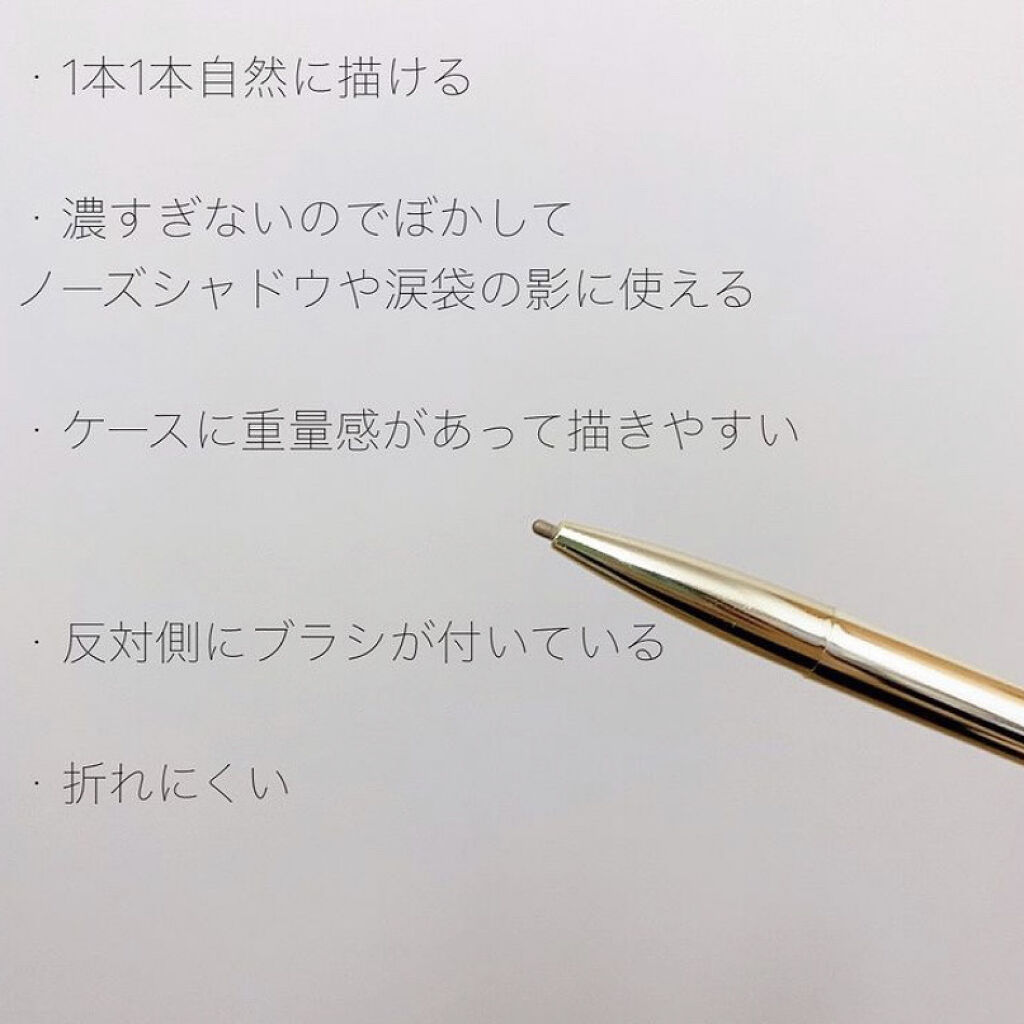 ・1本1本自然に描ける
・濃すぎないのでぼかして
ノーズシャドウや涙袋の影に使える
・ケースに重量感があって描きやすい
・反対側にブラシが付いている
・折れにくい